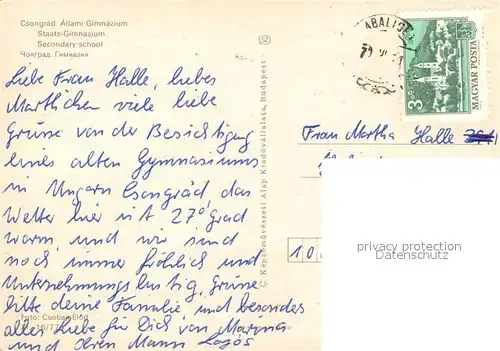 Csongrád. Állami Gimnázium
Staats-Gimnasium
Secondary school
Чонград. Гимназия
Liebe Frau Halle, liebes
Marthchen viele liebe
Grüsse von der Besichtigung
eines alten Gymnasiums
in Ungarn Csongrád, das
Wetter hier ist 27° grad
warm, und wir sind
noch immer fröhlich und
Unternehmungslustig, Grüsse
bitte deine Familie, und besonders
alles Liebe für Dich von
und ihren Mann Lajos
Foto: Csobai Elöd
C. Képzőművészeti Alap Kiadóvállalata, Budapest
ABALIGET
3 Ft
MAGYAR POSTA
Frau Martha Halle
10
privacy protection
Datenschutz